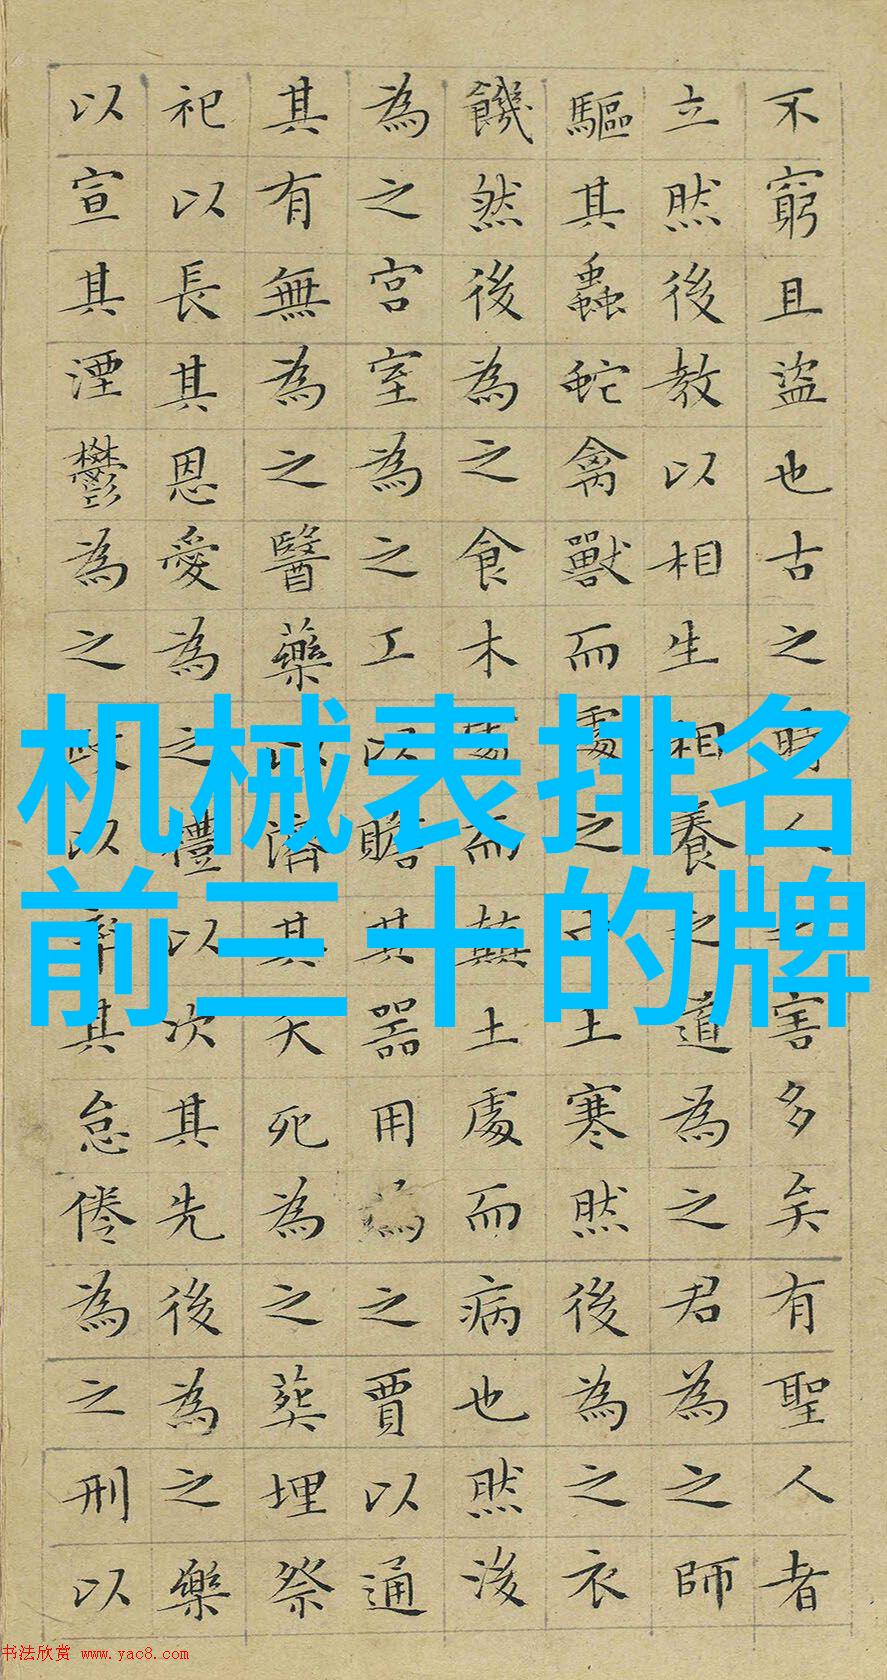 不窮且盜也古之時人之害多矣有聖人者
立然後教以相生相養之道為之君為之師
驅其蟲蛇禽獸而處之中土寒然後為之衣
饑然後為之食木處而蕪土處而病也然後
為之宮室為之工以贍其器用為之賈以通
其有無為之醫藥以濟其夭死為之葬埋祭
祀以長其恩愛為之禮以次其先後為之樂
以宣其湮鬱為之政以率其怠倦為之刑以
机械表排名
前三十的牌
书法欣赏 www.yac8.com